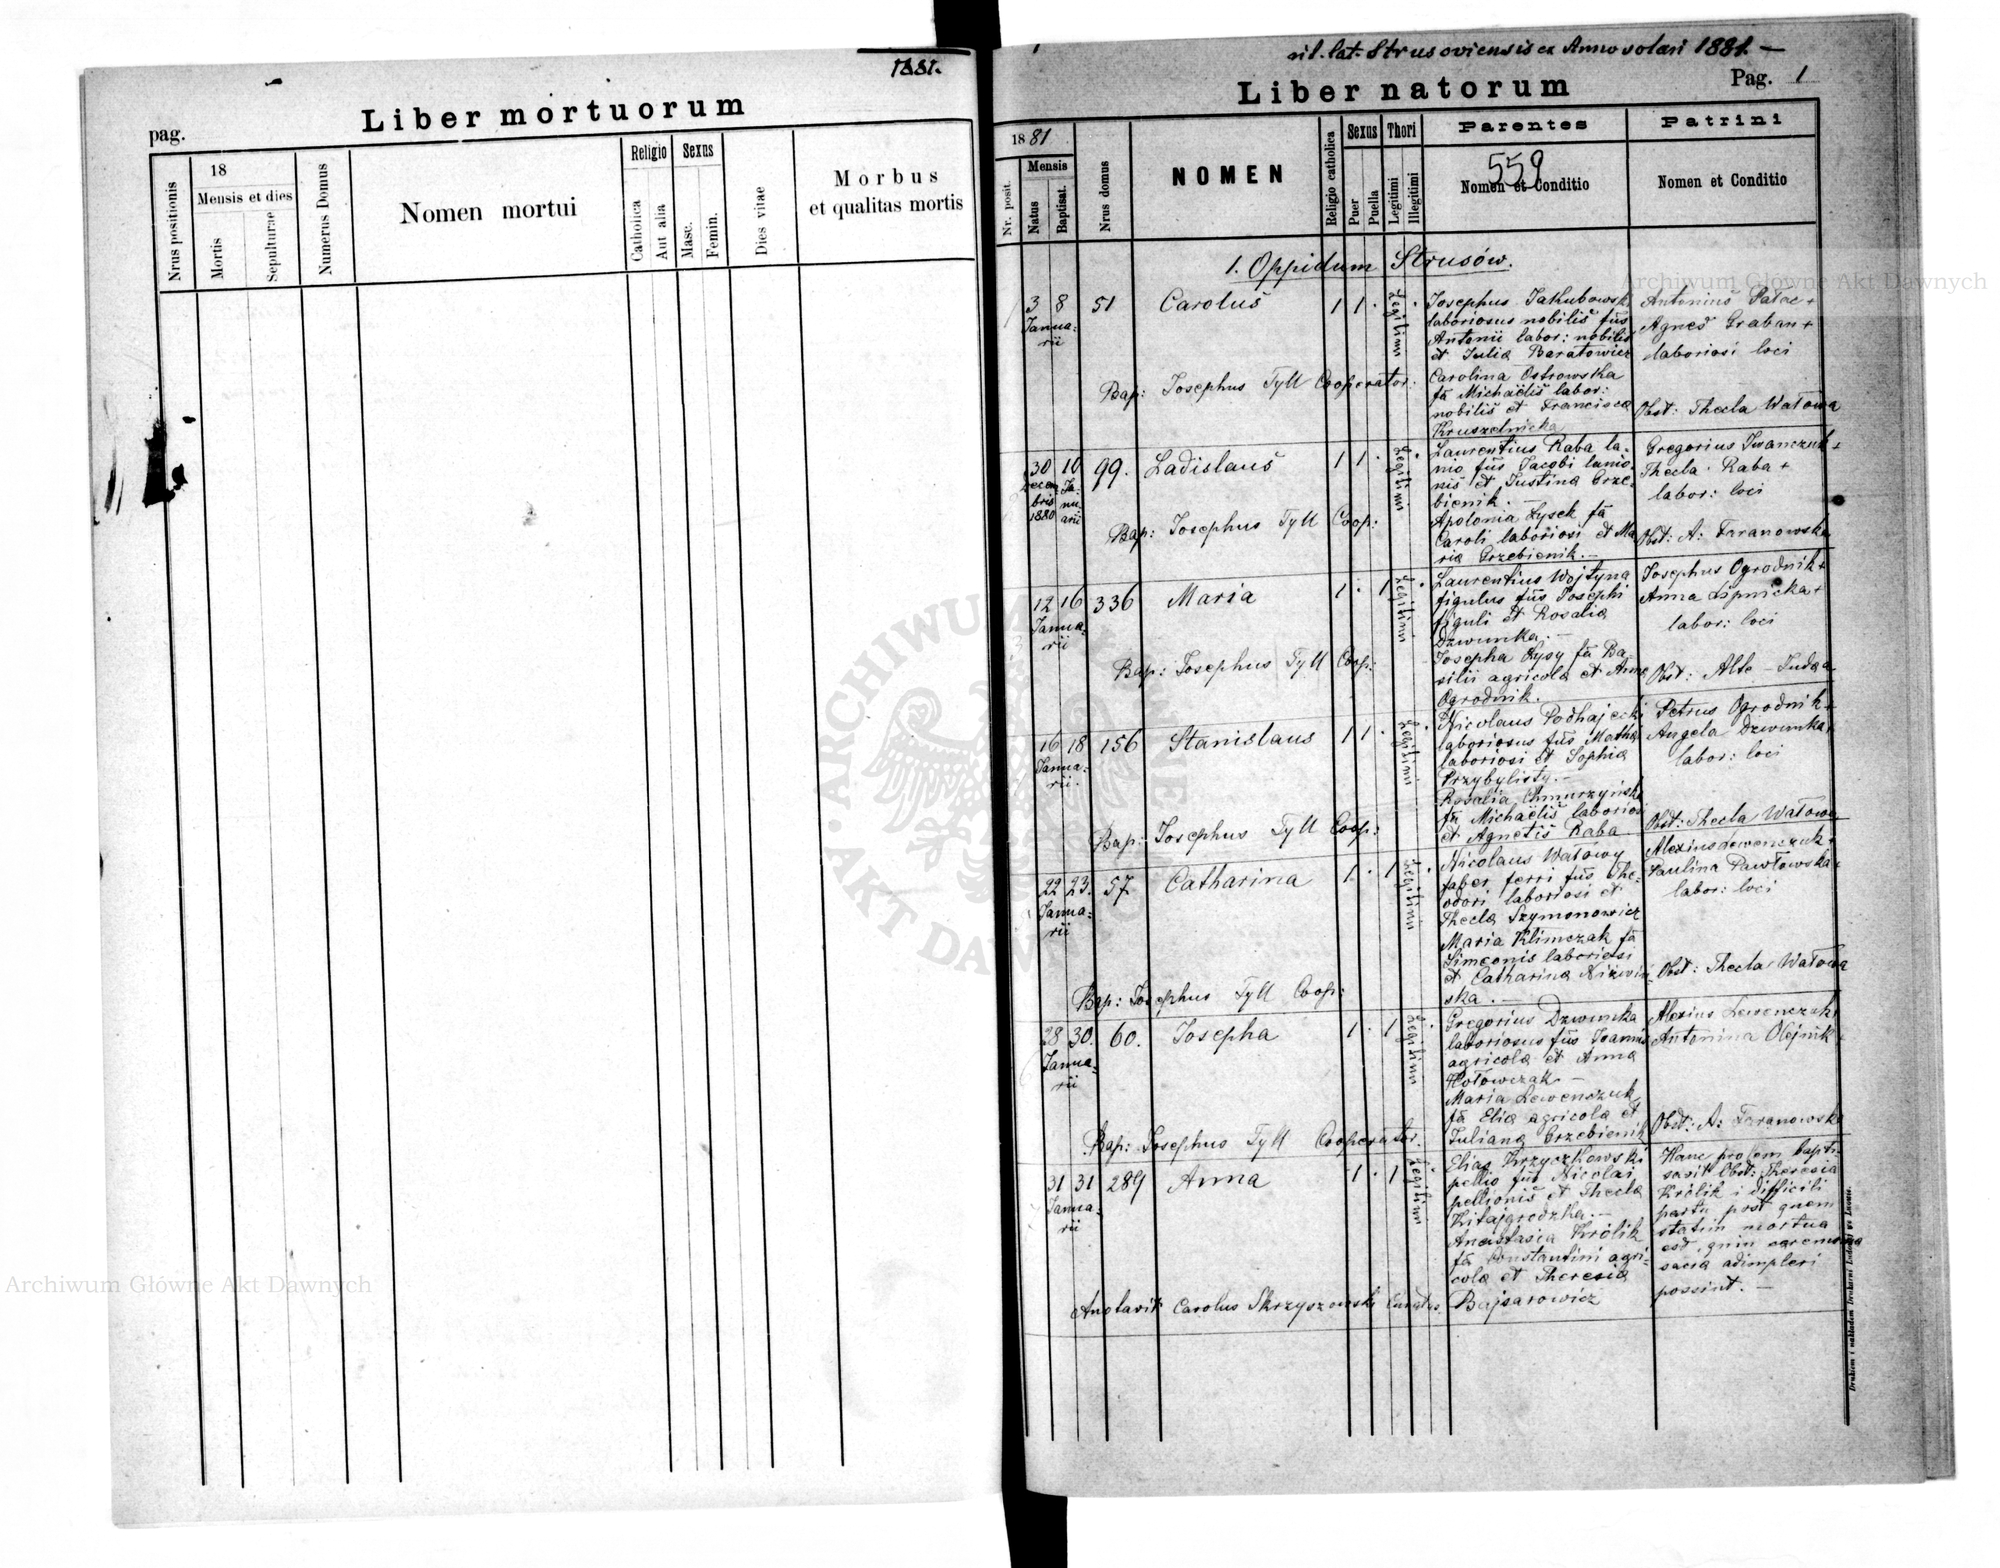 1881.
Liber mortuorum
pag.
Nrus positionis
18
Mensis et dies
Mortis
Sepulturae
Numerus Domus
Nomen mortui
Religio
Catholica
Aut alia
Sexus
Masc.
Femin.
Dies vitae
Morbus
et qualitas mortis
rit. lat. Strusoviensis ex Anno solari 1881. —
Liber natorum
Pag. 1
Nr. posit.
1881
Mensis
Natus
Baptisat.
Nrus domus
NOMEN
Religio catholica
Sexus
Puer
Puella
Thori
Legitimi
Illegitimi
Parentes
559
Nomen et Conditio
Patrini
Nomen et Conditio
1. Oppidum Strusów.
3 8 51 Carolus 1 1 .
Janua-
rii
Legitimi
Josephus Jakubowski
laboriosus nobilis fus
Antonii labor: nobilis
et Julia Baratowicz
Carolina Ostrowska
fa Michaëlis labor:
nobilis et Francisca
Kruszelnicka
Antonius Palac +
Agnes Graban +
laboriosi loci
Obst: Thecla Watowa
Bap: Josephus Tyll Cooperator.
30 10 99. Ladislaus 1 1 .
Decem
bris
1880
Ja-
nu
arii
Legitimi
Laurentius Raba la-
nio fus Jacobi lanio-
nis et Justina Grze-
bienik.
Apolonia Łysek fa
Caroli laboriosi et Ma
ria Grzebienik. —
Gregorius Iwanczuk +
Thecla Raba +
labor: loci
Obst: A: Taranowska
Bap: Josephus Tyll Coop:
12 16 336 Maria 1 . 1
Janua-
rii
Legitimi
Laurentius Wojtyna
figulus fus Josephi
figuli et Rosalia
Dzwunka. —
Josepha Łysy fa Ba
silii agricola et Anna
Ogrodnik.
Josephus Ogrodnik +
Anna Lipnicka +
labor: loci
Obst: Alte - Judaa
Bap: Josephus Tyll Coop:
16 18 156 Stanislaus 1 1 .
Janua-
rii.
Legitimi
Nicolaus Podhajecki
laboriosus fus Mathia
laboriosi et Sophia
Przybylisty. —
Rosalia Chmurzyńska
fa Michaëlis laboriosi
et Agnetis Raba
Petrus Ogrodnik +
Angela Dzwunka +
labor: loci
Obst: Thecla Watowa
Bap: Josephus Tyll Coop:
22 23. 57. Catharina 1 . 1
Janua-
rii
Legitimi
Nicolaus Watowy
faber ferri fus The-
odori laboriosi et
Thecla Szymonowicz
Maria Klimczak fa
Simeonis laboriosi
et Catharina Niżwiń
ska. —
Alexius Lewenczuk +
Paulina Pawłowska +
labor: loci
Obst: Thecla Watowa
Bap: Josephus Tyll Coop:
28 30. 60. Josepha 1 . 1
Janua-
rii
Legitimi
Gregorius Dzwunka
laboriosus fus Joannis
agricola et Anna
Hołowczak —
Maria Lewenczuk
fa Elia agricola et
Juliana Grzebienik
Alexius Lewenczuk
Antonina Olejnik +
Obst: A: Taranowska
Bap: Josephus Tyll Cooperator.
31 31 289 Anna 1 . 1
Janua-
rii
Legitimi
Elias Krzyczkowski
pellio fus Nicolai
pellionis et Thecla
Kitajgrodzka. —
Anastasia Królik
fa Constantini agri-
cola et Theresia
Bajsarowicz
Hanc prolem bapti-
savit Obst: Theresia
Królik i difficili
partu post quem
statim mortua
est, quin ceremonia
sacra adimpleri
possint. —
Anotavit Carolus Skrzyszowski Curatus.
Drukiem i nakładem Drukarni Ludowej we Lwowie.
ARCHIWUM GŁÓWNE
AKT DAWNYCH
Archiwum Główne Akt Dawnych
Archiwum Główne Akt Dawnych